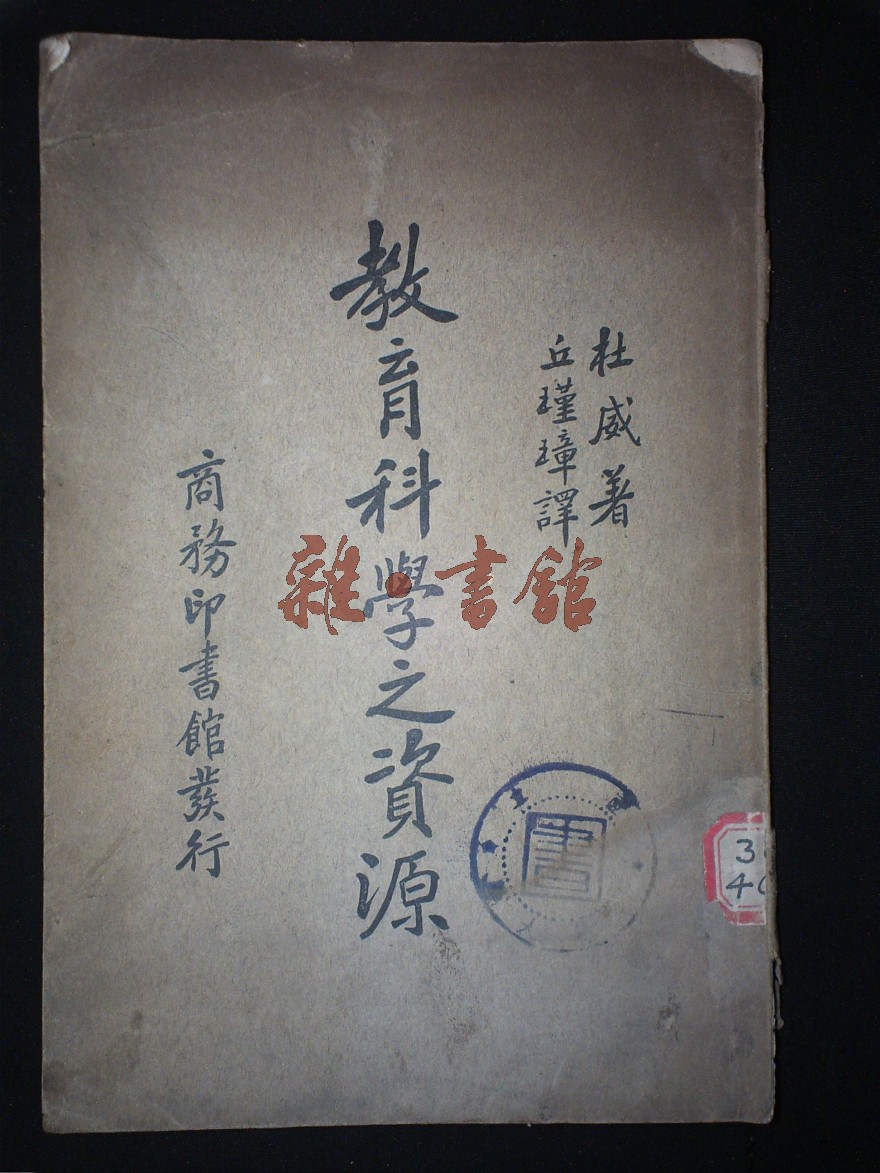 杜威著
丘瑾璋譯
教育科學之資源
商務印書館發行
雜·書館
書
3
40